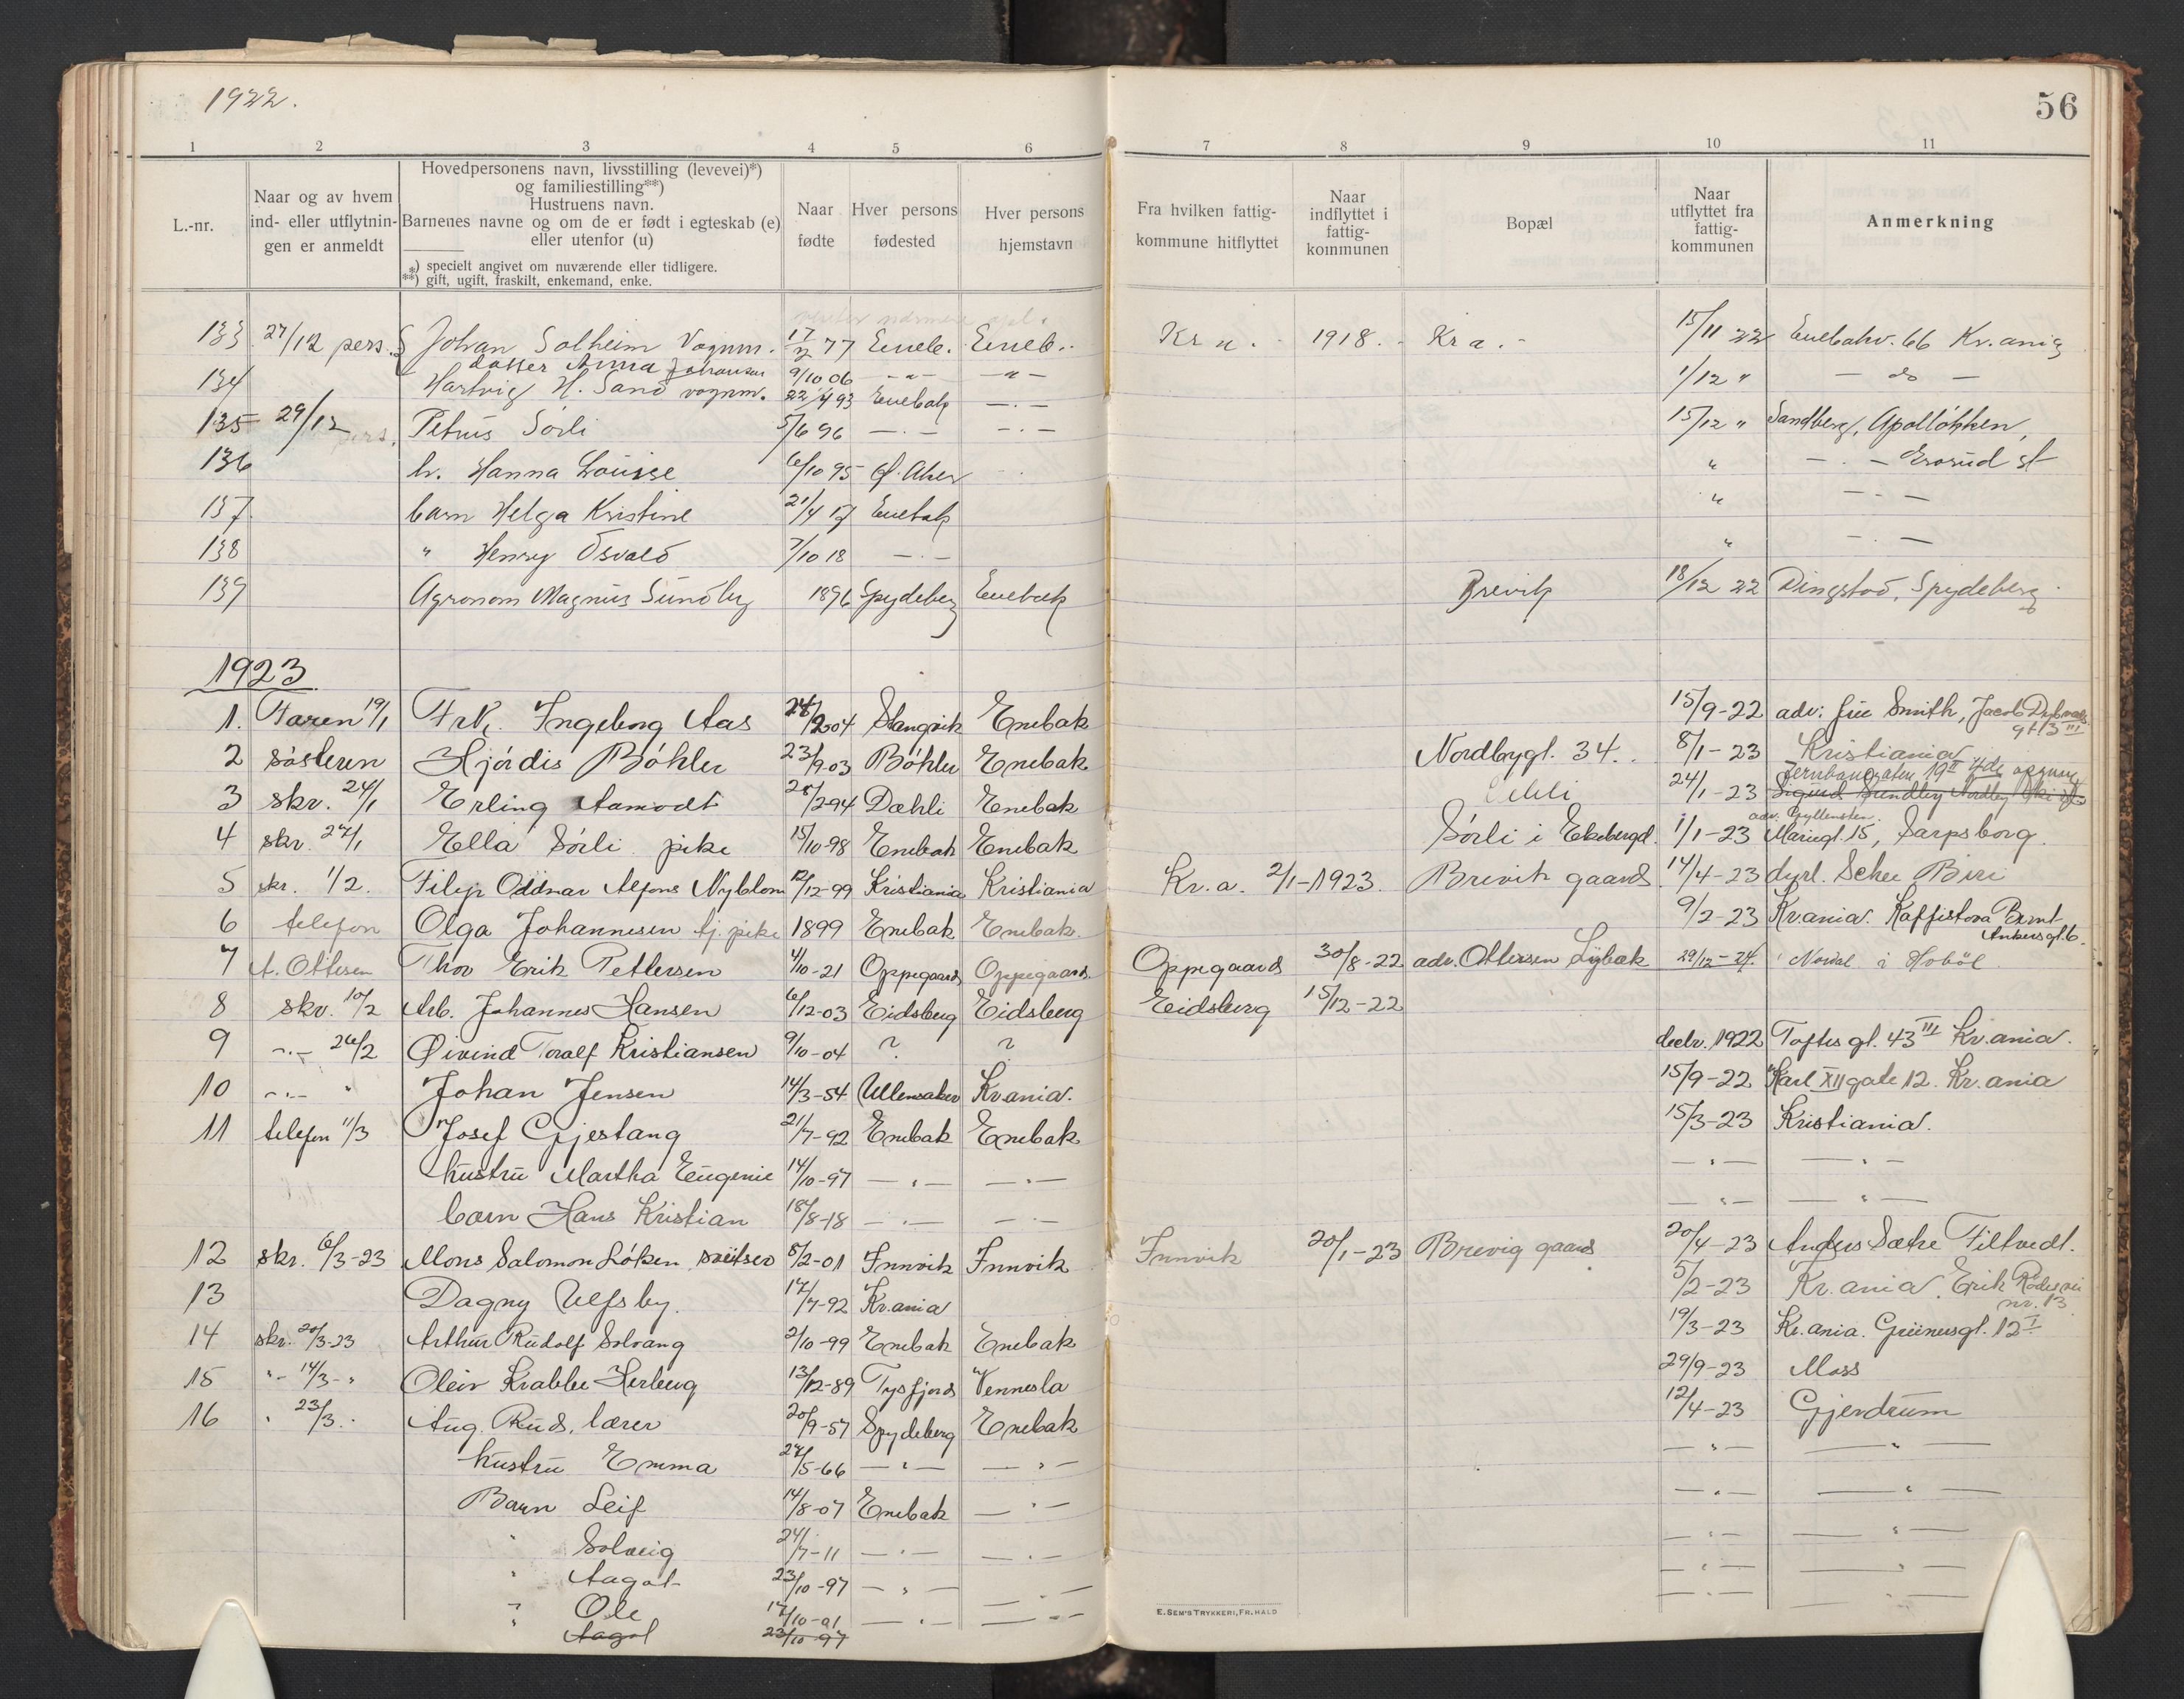 1922.
56
1 2 3 4 5 6 7 8 9 10 11
L.-nr.
Naar og av hvem
ind- eller utflytnin-
gen er anmeldt
Hovedpersonens navn, livsstilling (levevei)*)
og familiestilling**)
Hustruens navn.
Barnenes navne og om de er født i egteskab (e)
eller utenfor (u)
*) specielt angivet om nuværende eller tidligere.
**) gift, ugift, fraskilt, enkemand, enke.
Naar
fødte
Hver persons
fødested
Hver persons
hjemstavn
Fra hvilken fattig-
kommune hitflyttet
Naar
indflyttet i
fattig-
kommunen
Bopæl
Naar
utflyttet fra
fattig-
kommunen
Anmerkning
133 27/12 pers. Johan Solheim Vognm. 17/2 77 Eneb. Eneb. Kra. 1918. Kra. 15/11 22 Enebakv. 66 Kr.ania
datter Anna Johansen 9/10 06 -"- -"-
134 Hartvig H. Sand vognm. 22/4 93 Enebak -.- 1/12 " - do -
135 29/12 pers. Petrus Sörli 5/6 96 -.- -.- 15/12 " Sandberg, Apolløkken,
136 h. Hanna Louise 6/10 95 Ø. Aker " -.- Grorud st
137 barn Helga Kristine 21/4 17 Enebak " -.-
138 " Henry Osvald 7/10 18 -.- " -.-
139 Agronom Magnus Sundby 1896 Spydeberg Enebak Brevik 18/12 22 Dingstad, Spydeberg
1923
1. Faren 19/1 Frk. Ingeborg Aas 28/2 04 Stangvik Enebak 15/9-22 adr. fru Smith, Jacob Dybwads
gt 13 III
2 søsteren Hjördis Böhler 23/9-03 Böhler Enebak Nordbygt. 34. 8/1-23 Kristiania
Jernbanegaten 19 II
3 skr. 24/1 Erling Aamodt 28/2-94 Dæhli Enebak Dehli 24/1-23 Sigurd Sundby Nordby Ski st
adr. Gyllensten.
4 skr. 27/1 Ella Sörli pike 15/10-98 Enebak Enebak Sörli i Ekebergd. 1/1-23 Mariegt. 15, Sarpsborg.
5 skr. 1/2. Filip Oddvar Alfons Nyblom 12/12-99 Kristiania Kristiania Kr.a. 2/1-1923. Brevik gaard. 14/4-23 dyrl. Schee Biri
6 telefon Olga Johannesen tj. pike 1899 Enebak Enebak. 9/2-23 Kr.ania. Kaffistova Bernt
Ankersgt. 6.
7 A. Ottesen Thor Erik Pettersen 4/10-21 Oppegaard Oppegaard. Oppegaard 30/8-22 adr. Ottersen Lybæk 29/12-24. Nordal i Hobøl
8 skr. 10/2 Arb. Johannes Hansen 6/12-03 Eidsberg Eidsberg Eidsberg 15/12-22
9 -.- 26/2 Øivind Toralf Kristiansen 9/10-04 ? ? decbr. 1922 Toftes gt. 43 III Kr.ania.
10 -.- " Johan Jensen 14/3-54 Ullensaker Kr.ania. 15/9-22 Karl XII gate 12. Kr.ania
11 telefon 11/3 Josef Gjestang 21/7-92 Enebak Enebak 15/3-23 Kristiania.
hustru Martha Eugenie 14/10-97 -"- -"- -"- -"-
barn Hans Kristian 18/8-18 -"- -"- -"- -"-
12 skr. 6/3-23 Mons Salomon Löken sveitser 5/2-01 Innvik Innvik Innvik 20/1-23 Brevig gaard 20/4-23 Anders Sætre Filtvedt.
13 Dagny Ulfsby. 17/7-92 Kr.ania 5/2-23 Kr.ania. Erik Rødes vei
nr. 13
14 skr. 20/3-23 Arthur Rudolf Solvang 2/10-99 Enebak Enebak 19/3-23 Kr.ania. Grünersgt. 12 I
15 "- 14/3-" Oleiv Krabbe Herberg 13/12-89 Tysfjord Vennesla 29/9-23 Moss
16 " 23/3 " Aug. Rud, lærer 20/9-57 Spydeberg Enebak 12/4-23 Gjerdrum
hustru Emma 27/5-66 -"- -"- -"- -"-
Barn Leif 14/8-07 Enebak -"- -"- -"-
" Solveig 24/7-11 -"- -"- -"- -"-
" Aagot 23/10-97 -"- -"- -"- -"-
" Ole 17/10-01 -"- -"- -"- -"-
" Aagot 23/10 97
E. SEM'S TRYKKERI, FR.HALD